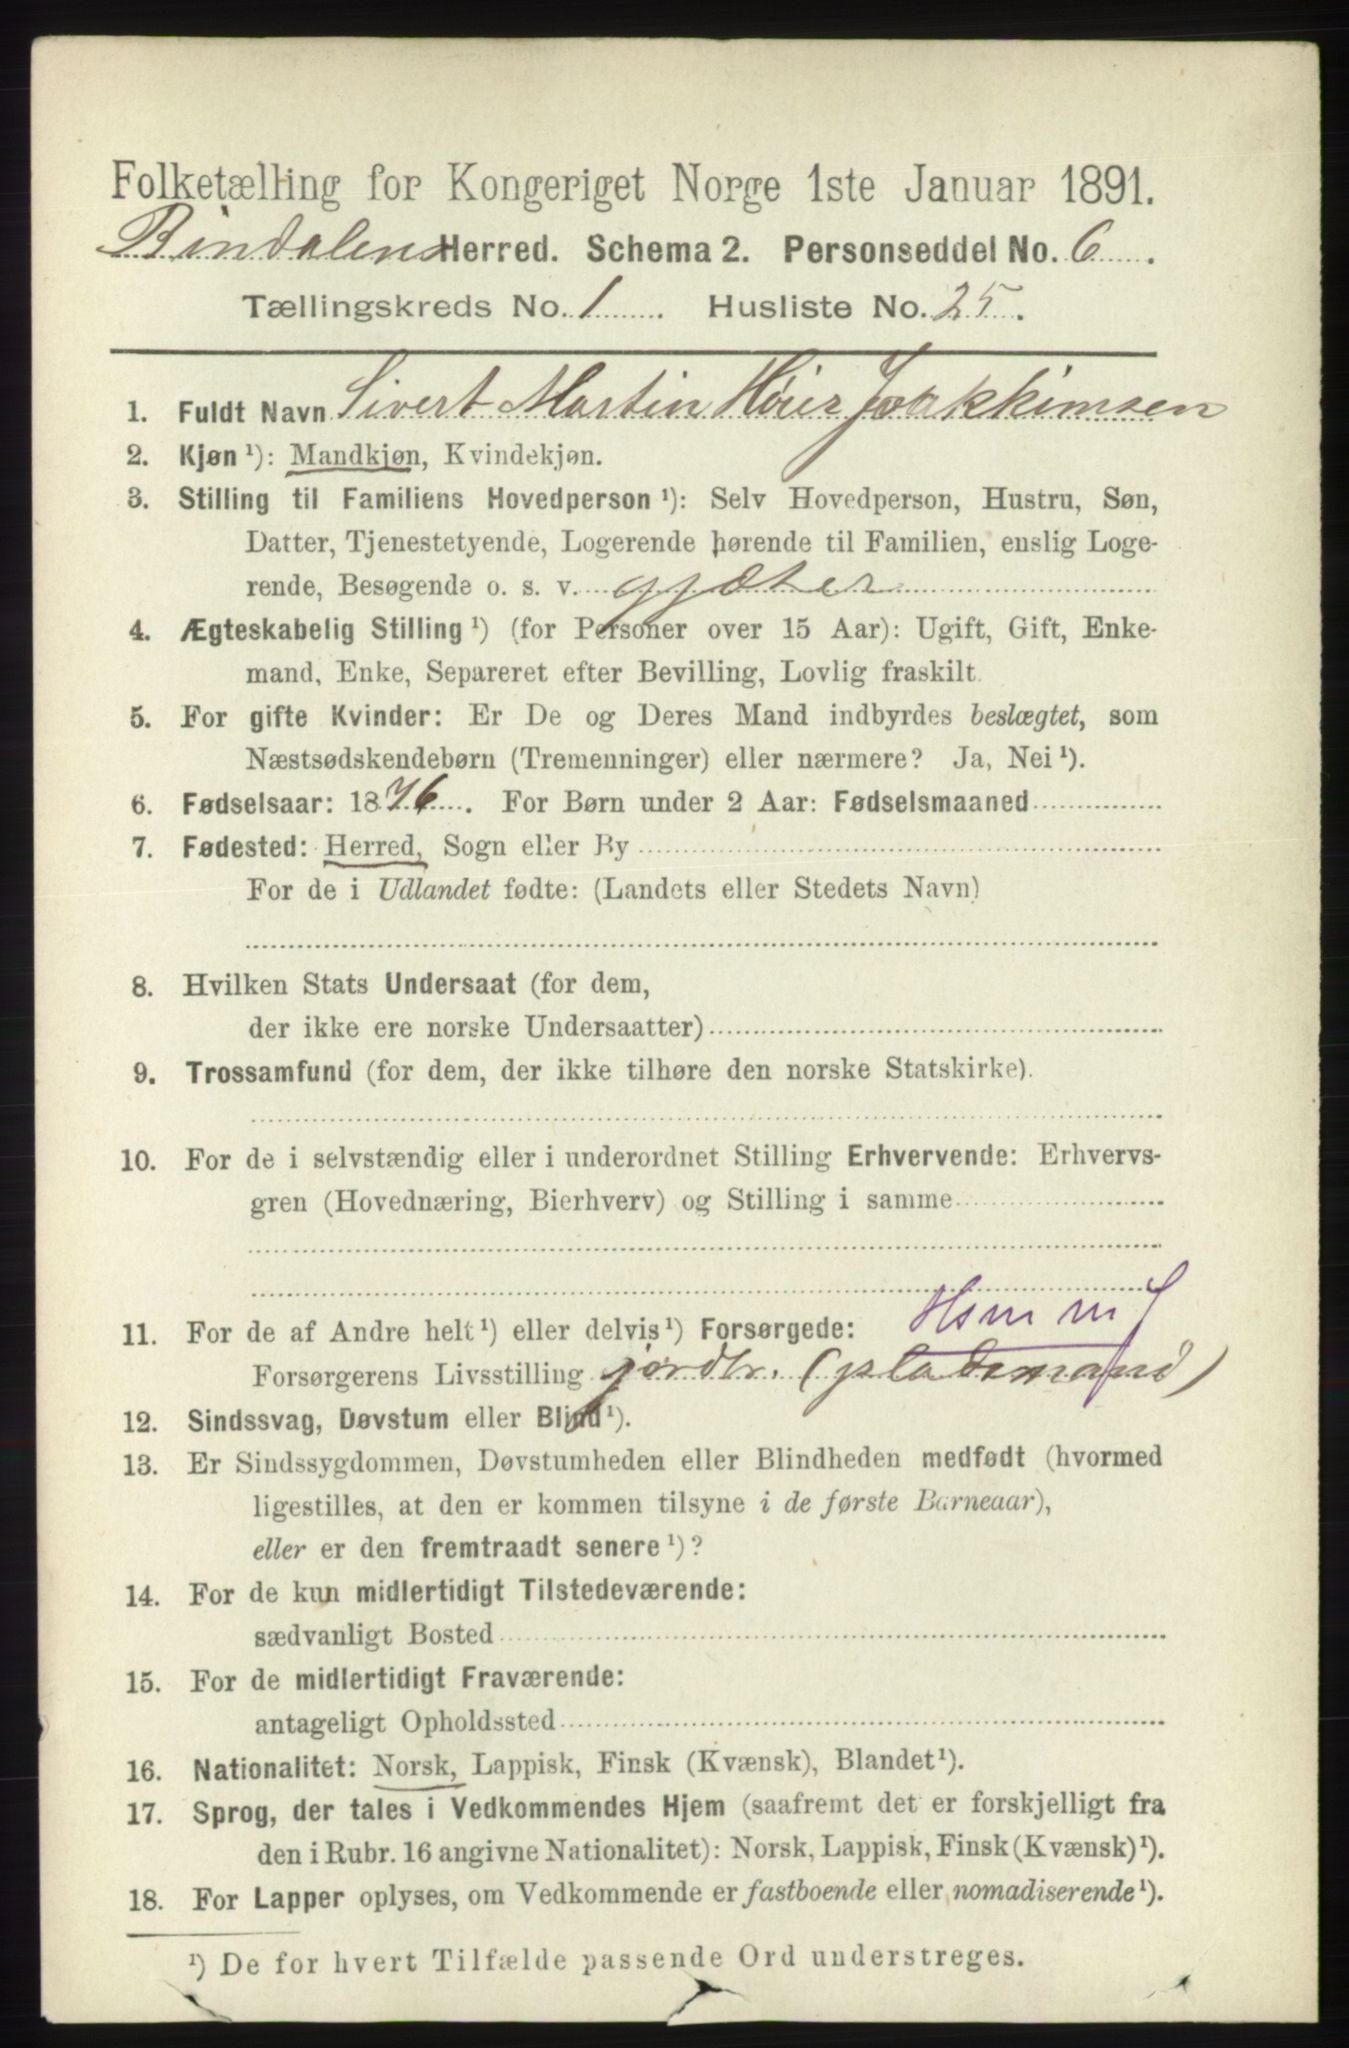 Folketælling for Kongeriget Norge 1ste Januar 1891.
Bindalens Herred. Schema 2. Personseddel No. 6.
Tællingskreds No. 1. Husliste No. 25.
1. Fuldt Navn Sivert Martin Høier Joakkimsen
2. Kjøn ¹): Mandkjøn, Kvindekjøn.
3. Stilling til Familiens Hovedperson ¹): Selv Hovedperson, Hustru, Søn,
Datter, Tjenestetyende, Logerende hørende til Familien, enslig Loge-
rende, Besøgende o. s. v. gjæter
4. Ægteskabelig Stilling ¹) (for Personer over 15 Aar): Ugift, Gift, Enke-
mand, Enke, Separeret efter Bevilling, Lovlig fraskilt.
5. For gifte Kvinder: Er De og Deres Mand indbyrdes beslægtet, som
Næstsødskendebørn (Tremenninger) eller nærmere? Ja, Nei ¹).
6. Fødselsaar: 1876. For Børn under 2 Aar: Fødselsmaaned
7. Fødested: Herred, Sogn eller By
For de i Udlandet fødte: (Landets eller Stedets Navn)
8. Hvilken Stats Undersaat (for dem,
der ikke ere norske Undersaatter)
9. Trossamfund (for dem, der ikke tilhøre den norske Statskirke).
10. For de i selvstændig eller i underordnet Stilling Erhvervende: Erhvervs-
gren (Hovednæring, Bierhverv) og Stilling i samme
Hsm m J
11. For de af Andre helt ¹) eller delvis ¹) Forsørgede:
Forsørgerens Livsstilling jordbr. (pladsmand)
12. Sindssvag, Døvstum eller Blind ¹).
13. Er Sindssygdommen, Døvstumheden eller Blindheden medfødt (hvormed
ligestilles, at den er kommen tilsyne i de første Barneaar),
eller er den fremtraadt senere ¹)?
14. For de kun midlertidigt Tilstedeværende:
sædvanligt Bosted
15. For de midlertidigt Fraværende:
antageligt Opholdssted
16. Nationalitet: Norsk, Lappisk, Finsk (Kvænsk), Blandet ¹).
17. Sprog, der tales i Vedkommendes Hjem (saafremt det er forskjelligt fra
den i Rubr. 16 angivne Nationalitet): Norsk, Lappisk, Finsk (Kvænsk) ¹).
18. For Lapper oplyses, om Vedkommende er fastboende eller nomadiserende ¹).
¹) De for hvert Tilfælde passende Ord understreges.